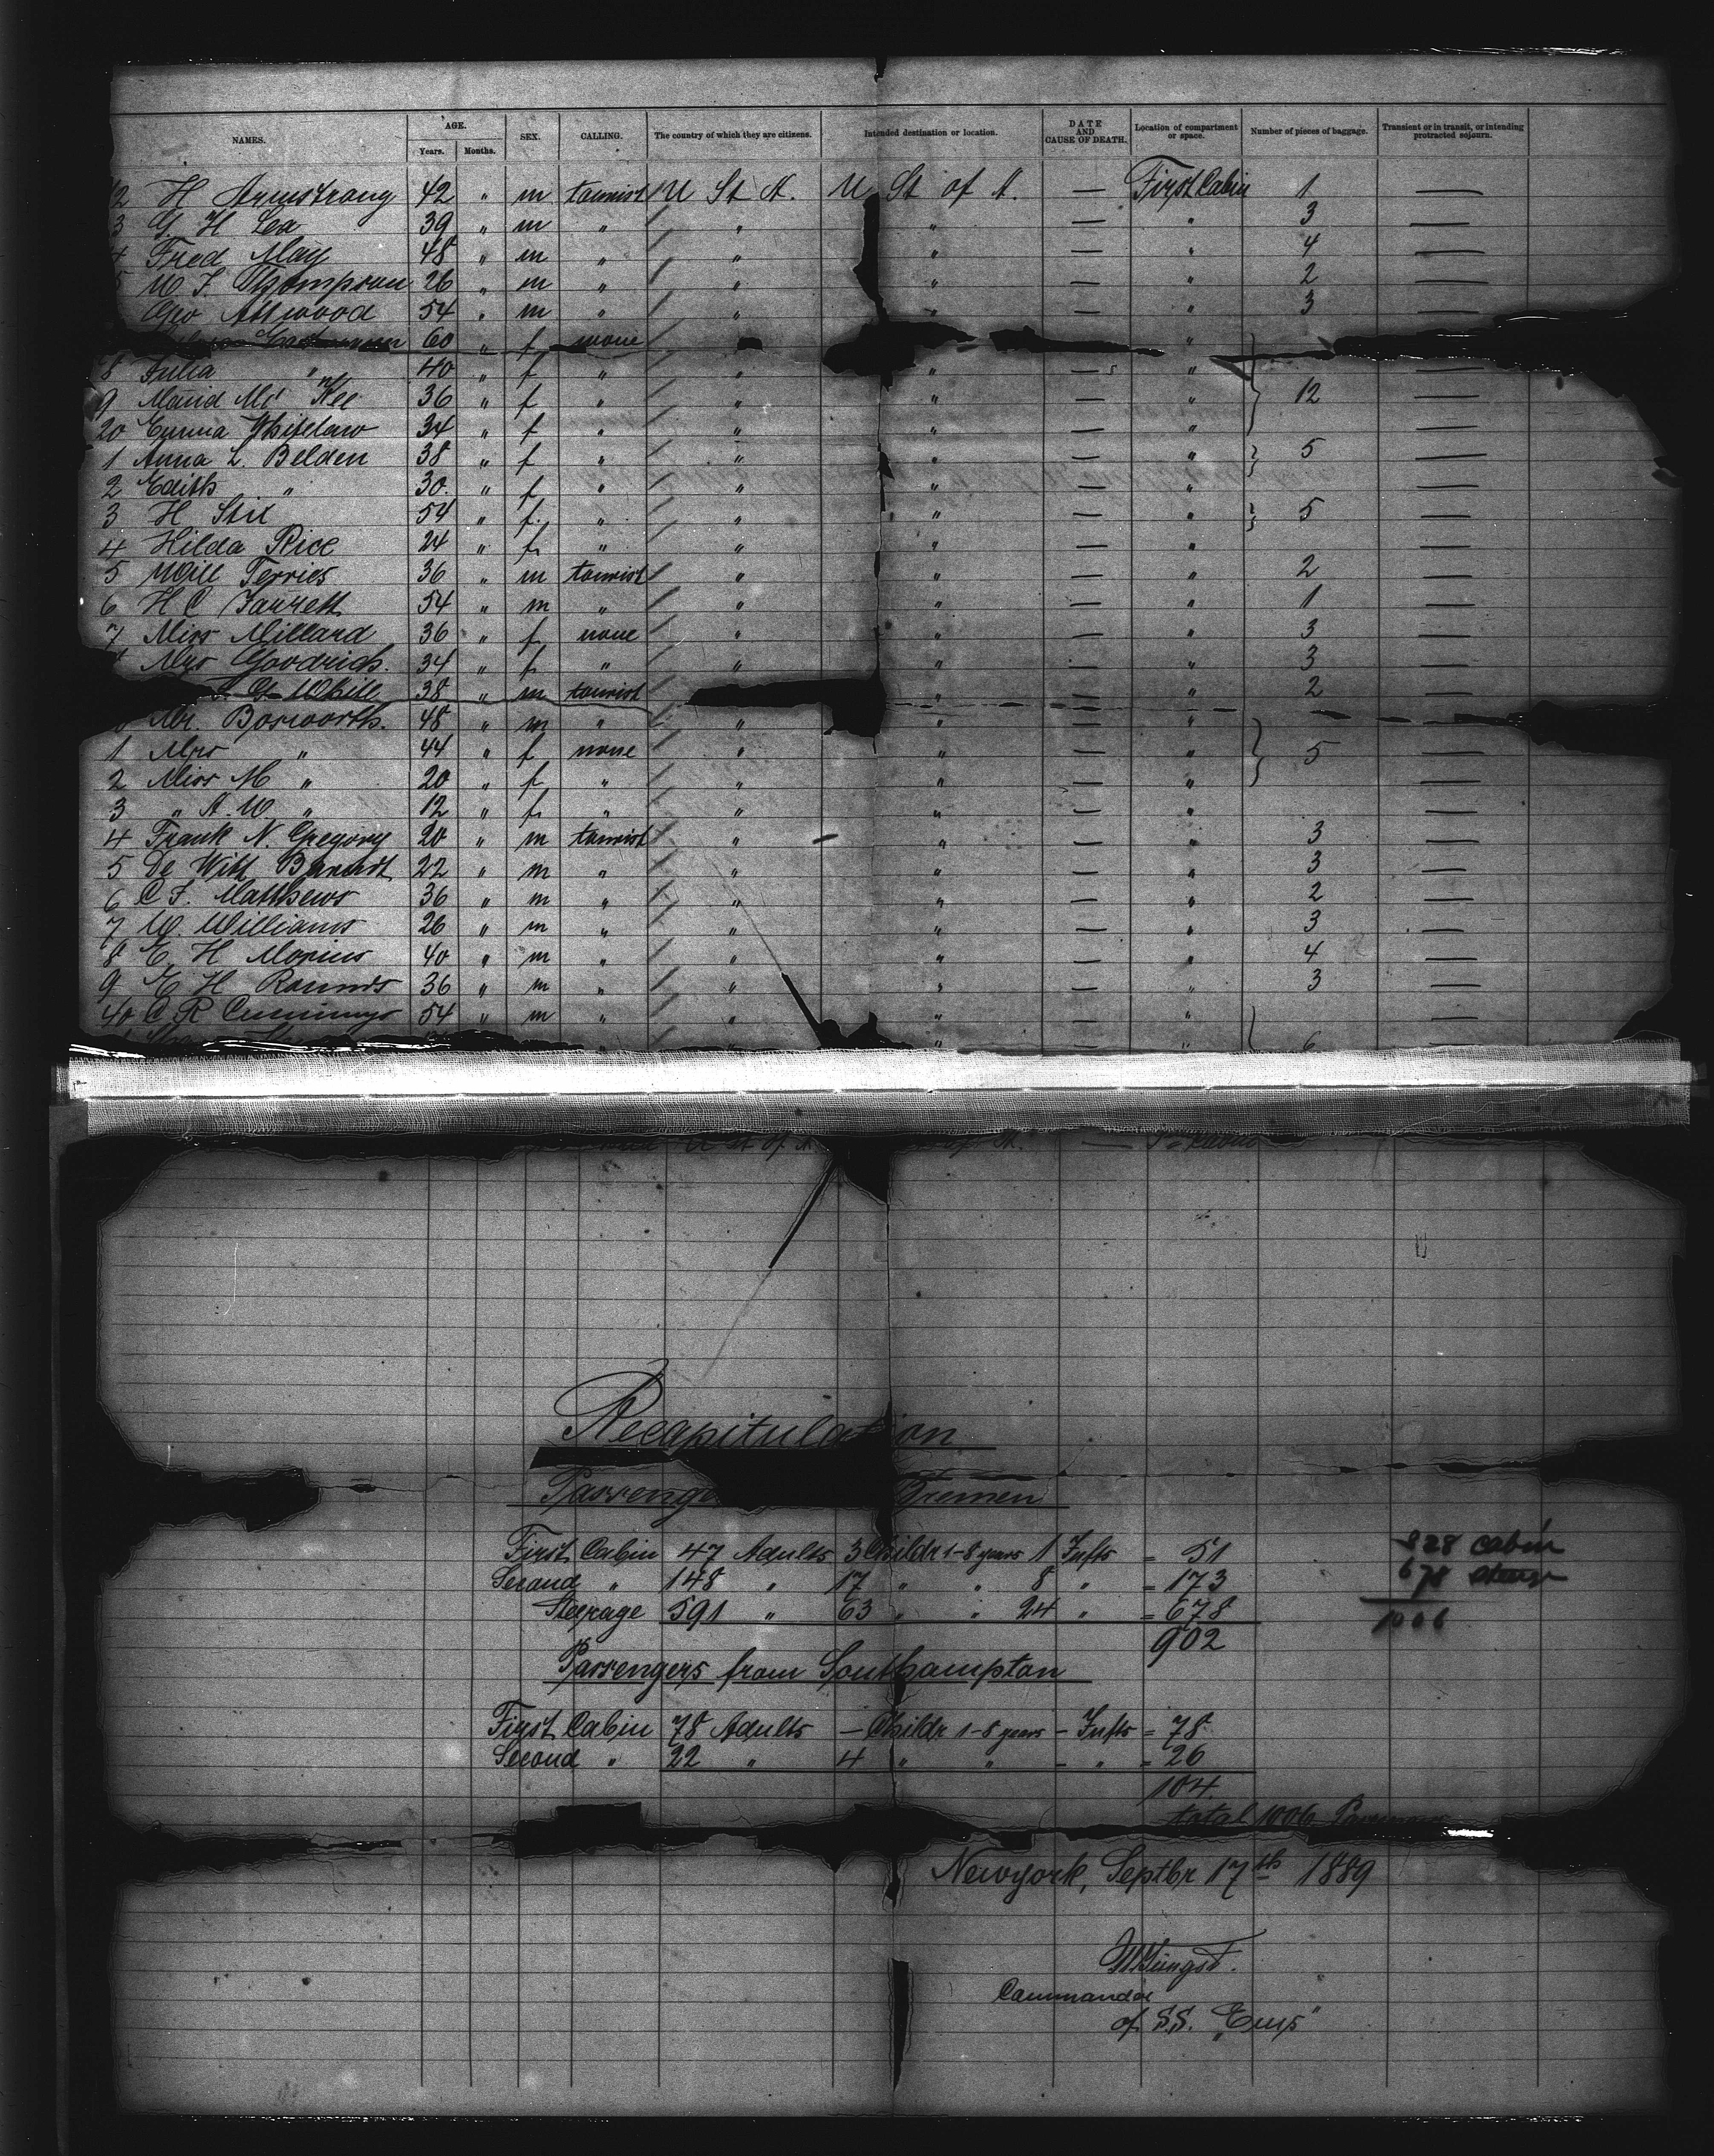 NAMES. AGE. Years. Months. SEX. CALLING. The country of which they are citizens. Intended destination or location. DATE AND CAUSE OF DEATH. Location of compartment or space. Number of pieces of baggage. Transient or in transit, or intending protracted sojourn.
2 H Armstrong 42 " m tourist U St A. U St of A. — First Cabin 1 —
3 G. H Lea 39 " m " " " — " 3 —
Fred May 48 " m " " " — " 4 —
5 W F. Thompson 26 " m " " " — " 2 —
Geo Attwood 54 " m " " " — " 3 —
60 " f none "
8 Julia " 40 " f " " " — " —
9 Maud Mc Kee 36 " f " " " — " 12 —
20 Emma Whitelaw 34 " f " " " — " —
1 Anna L. Belden 38 " f " " " — " 5 —
2 Edith " 30 " f " " " — " —
3 H Stix 54 " f. " " " — " 5 —
4 Hilda Rice 24 " f " " " — " —
5 Will Ferries 36 " m tourist " " — " 2 —
6 H C Jarrett 54 " m " " " — " 1 —
7 Miss Millard 36 " f none " " — " 3 —
Mrs Goodrich. 34 " f " " " — " 3 —
White 38 " m tourist " — " 2 —
Mr. Bosworth. 48 " m " " " — " —
1 Mrs " 44 " f none " " — " 5 —
2 Miss M " 20 " f " " " — " —
3 " A. W " 12 " f " " " — " —
4 Frank N. Gregory 20 " m tourist " " — " 3 —
5 De Witt 22 " m " " " — " 3 —
6 C F. Matthews 36 " m " " " — " 2 —
7 W. Williams 26 " m " " " — " 3 —
8 E. H Morius 40 " m " " " — " 4 —
9 E H Rounds 36 " m " " " — " 3 —
40 C R Cummings 54 " m " " " — " —
" " " — " 6 —
U St of A — Cabin
Recapitulation
Bremen
First Cabin 47 Adults 3 Childr 1-8 years 1 Infts = 51
828 cabin
Second " 148 " 17 " " 8 " = 173
678
Steerage 591 " 63 " " 24 " = 678
1006
902
Passengers from Southampton
First Cabin 78 Adults — Childr 1-8 years — Infts = 78
Second " 22 " 4 " " — " = 26
104.
total 1006
Newyork, Septbr 17th 1889
Commander
of S.S. "Ems"